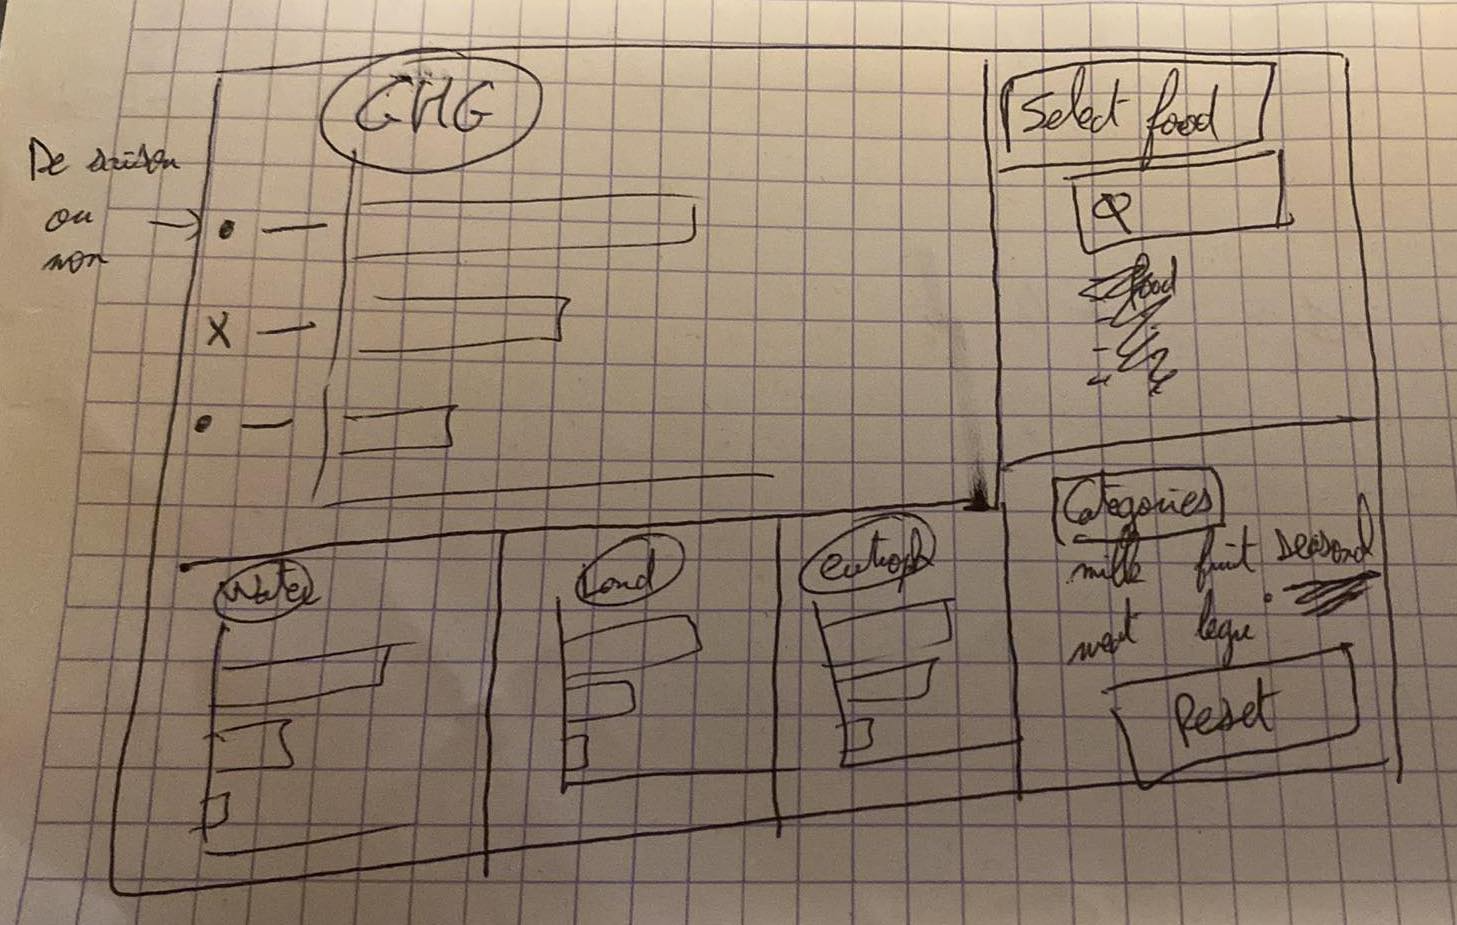 GHG
De saison
ou
non
X
Select food
food
Water
Land
eutroph
Categories
milk fruit seasonal
meat legu
Reset